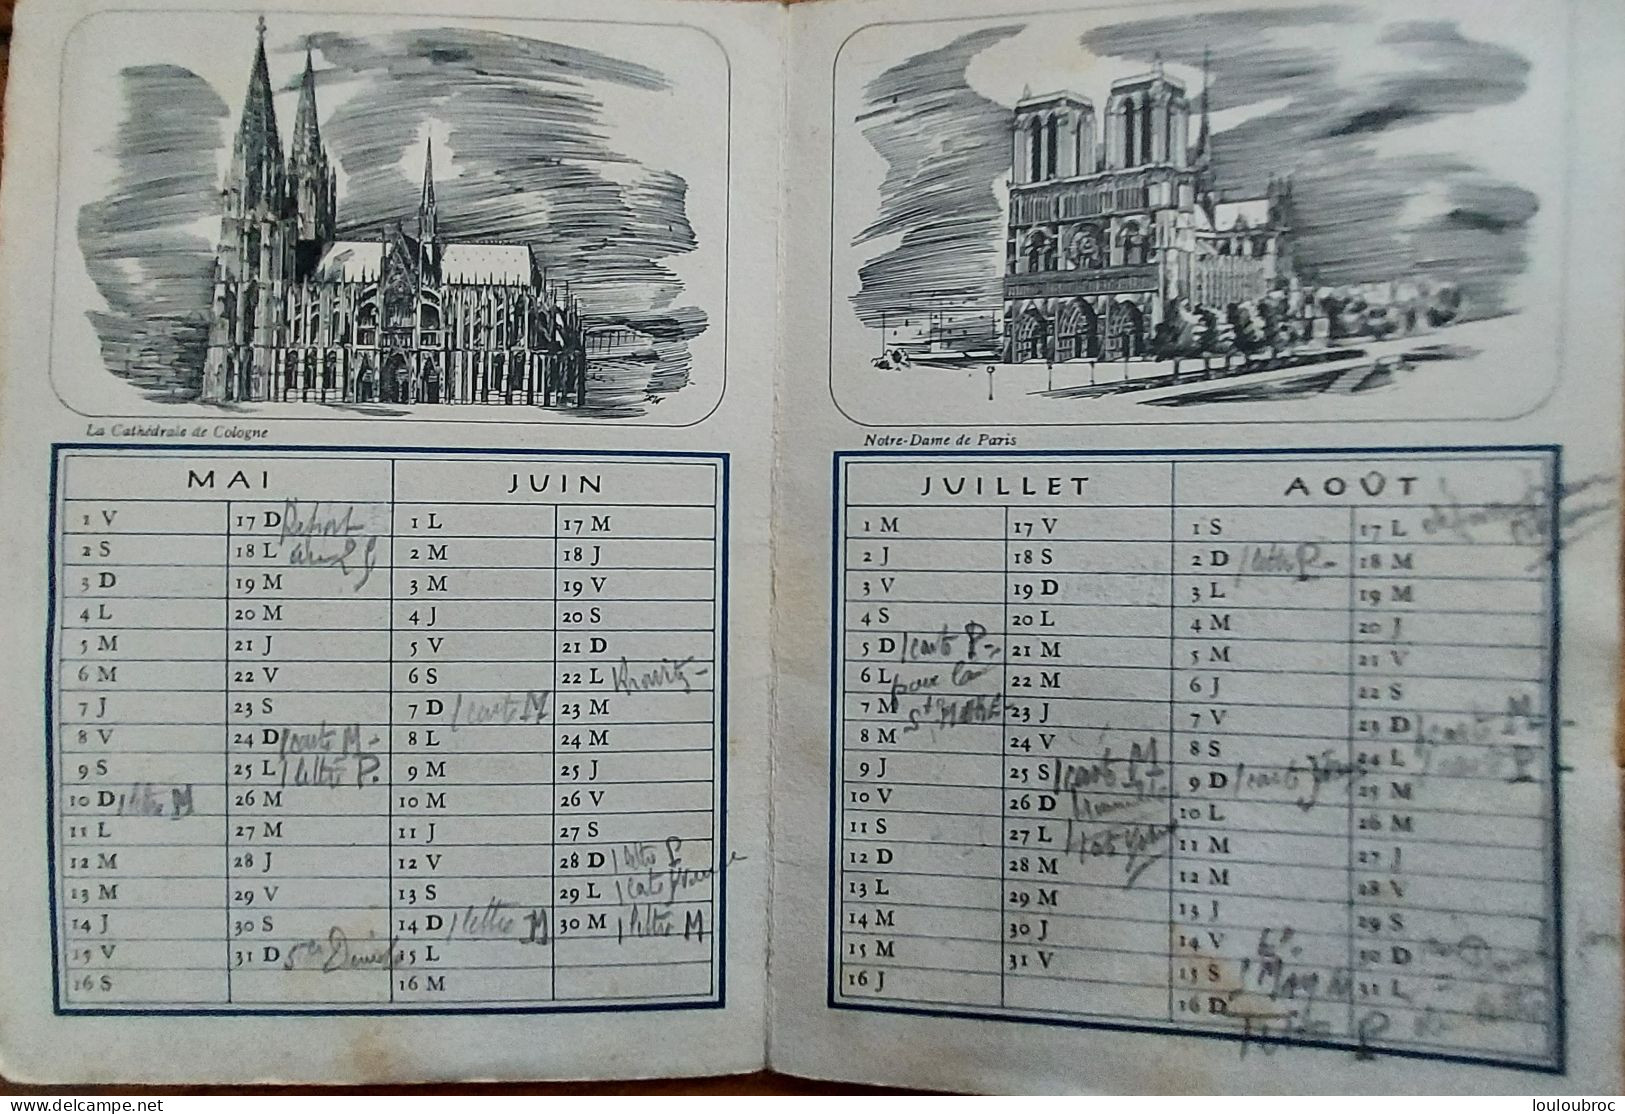 La Cathédrale de Cologne
MAI
JUIN
1 V
2 S
3 D
4 L
5 M
6 M
7 J
8 V
9 S
10 D 1 lettre M
11 L
12 M
13 M
14 J
15 V
16 S
17 D
18 L
19 M
20 M
21 J
22 V
23 S
24 D 1 carte M -
25 L 1 lettre P.
26 M
27 M
28 J
29 V
30 S
31 D
1 L
2 M
3 M
4 J
5 V
6 S
7 D 1 carte M
8 L
9 M
10 M
11 J
12 V
13 S
14 D 1 lettre M
15 L
16 M
17 M
18 J
19 V
20 S
21 D
22 L
23 M
24 M
25 J
26 V
27 S
28 D 1 lettre P
29 L 1 carte
30 M 1 lettre M
Notre-Dame de Paris
JUILLET
AOÛT
1 M
2 J
3 V
4 S
5 D 1 carte P -
6 L pour la
7 M
8 M
9 J
10 V
11 S
12 D
13 L
14 M
15 M
16 J
17 V
18 S
19 D
20 L
21 M
22 M
23 J
24 V
25 S 1 carte M
26 D
27 L
28 M
29 M
30 J
31 V
1 S
2 D 1 lettre P -
3 L
4 M
5 M
6 J
7 V
8 S
9 D 1 carte
10 L
11 M
12 M
13 J
14 V
15 S
16 D
17 L
18 M
19 M
20 J
21 V
22 S
23 D 1 carte M -
24 L 1 carte P -
25 M
26 M
27 J
28 V
29 S
30 D
31 L
louloubroc